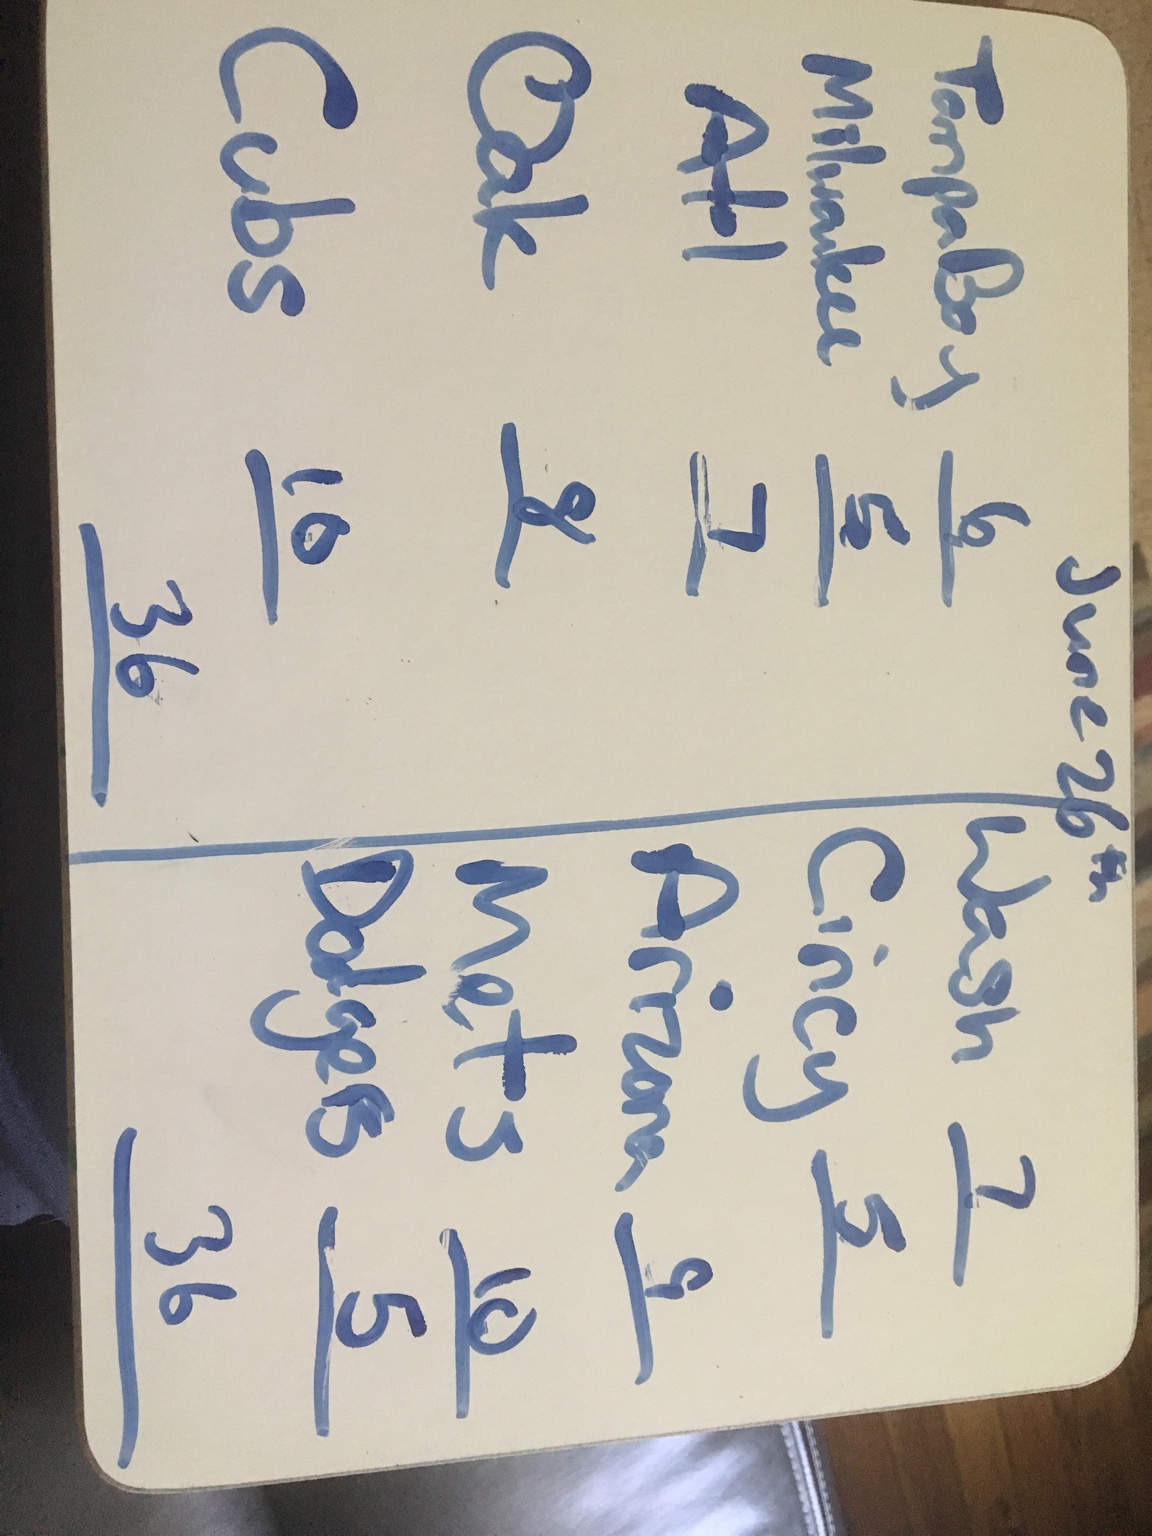 June 26th
TampaBay 6
Milwaukee 5
Atl 7
Oak 8
Cubs 10
36
Wash 7
Cincy 5
Arizona 9
Mets 10
Dodgers 5
36